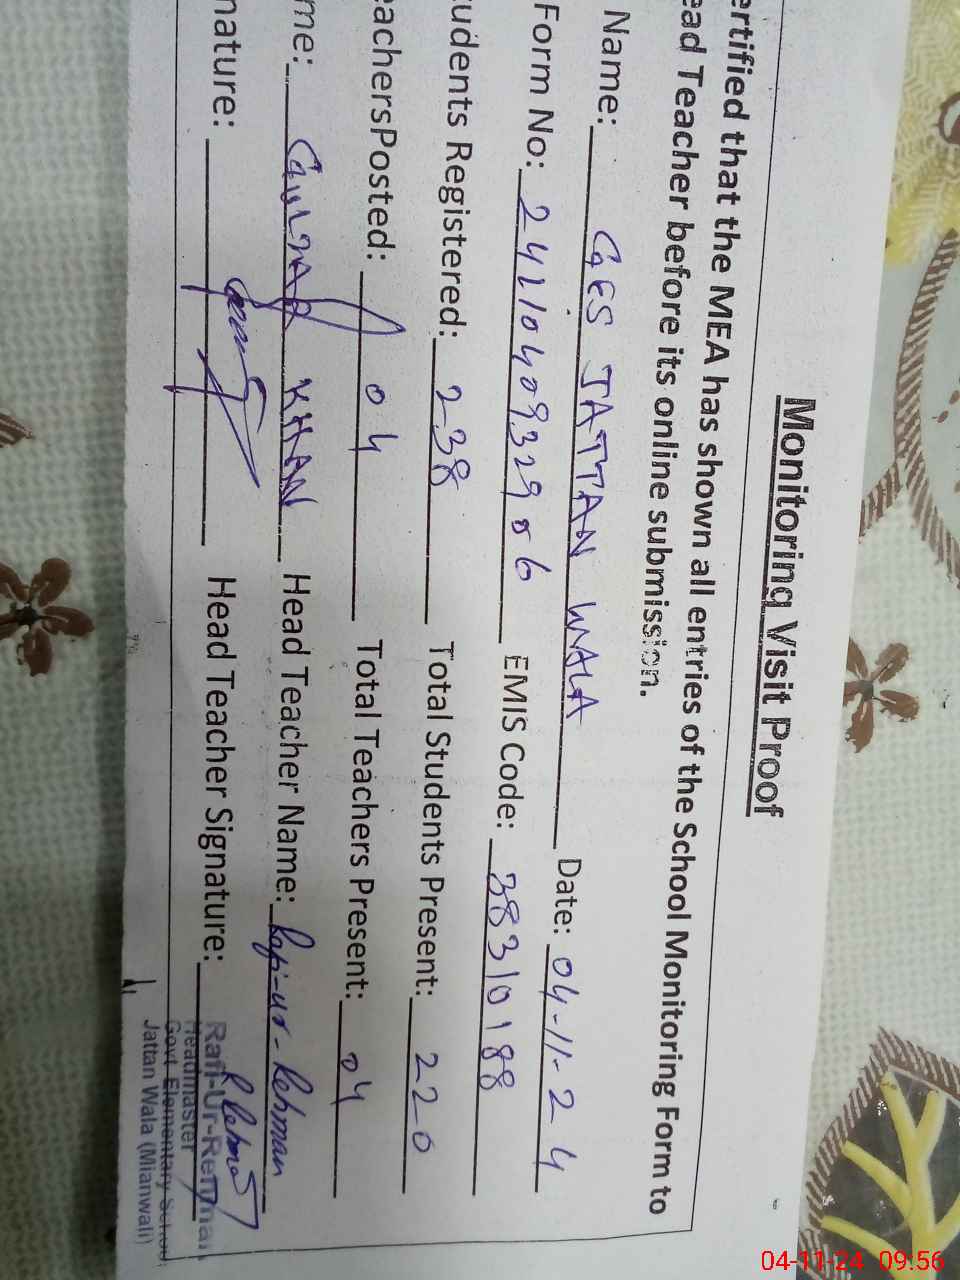 Monitoring Visit Proof
ertified that the MEA has shown all entries of the School Monitoring Form to
ead Teacher before its online submission.
Name: GES JATTAN WALA Date: 04-11-24
Form No: 242104093290 6 EMIS Code: 38310188
tudents Registered: 238 Total Students Present: 220
eachersPosted: 04 Total Teachers Present: 04
me: GULZAR KHAN Head Teacher Name: Rafi-ur-Rehman
nature: Head Teacher Signature:
Rafi-Ur-Rehman
Headmaster
Govt. Elementary School
Jattan Wala (Mianwali)
04-11-24 09:56